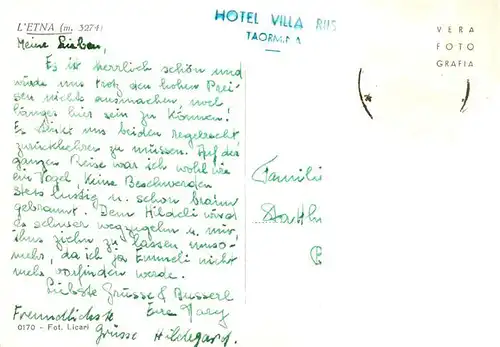 L'ETNA (m. 3274)
HOTEL VILLA RIIS
TAORMINA
VERA
FOTO
GRAFIA
Meine Lieben,
Es ist herrlich schön und
würde uns trotz den hohen Prei-
sen nichts ausmachen, noch
länger hier sein zu können!
Es uns beiden regelrecht,
zurückkehren zu müssen. Auf der
ganzen Reise war ich wohl wie
ein Vogel, keine Beschwerden
stets lustig u. schön braun
gebrannt. Dem Hildeli würd
es schwer wegzugehn u. mir
ihns ziehn zu lassen umso-
mehr, da ich ja Emmeli nicht
mehr vorfinden werde.
Liebste Grüsse & Busserl
Eure Mary
Freundlichste
Grüsse Hildegard.
Famili
0170 - Fot. Licari